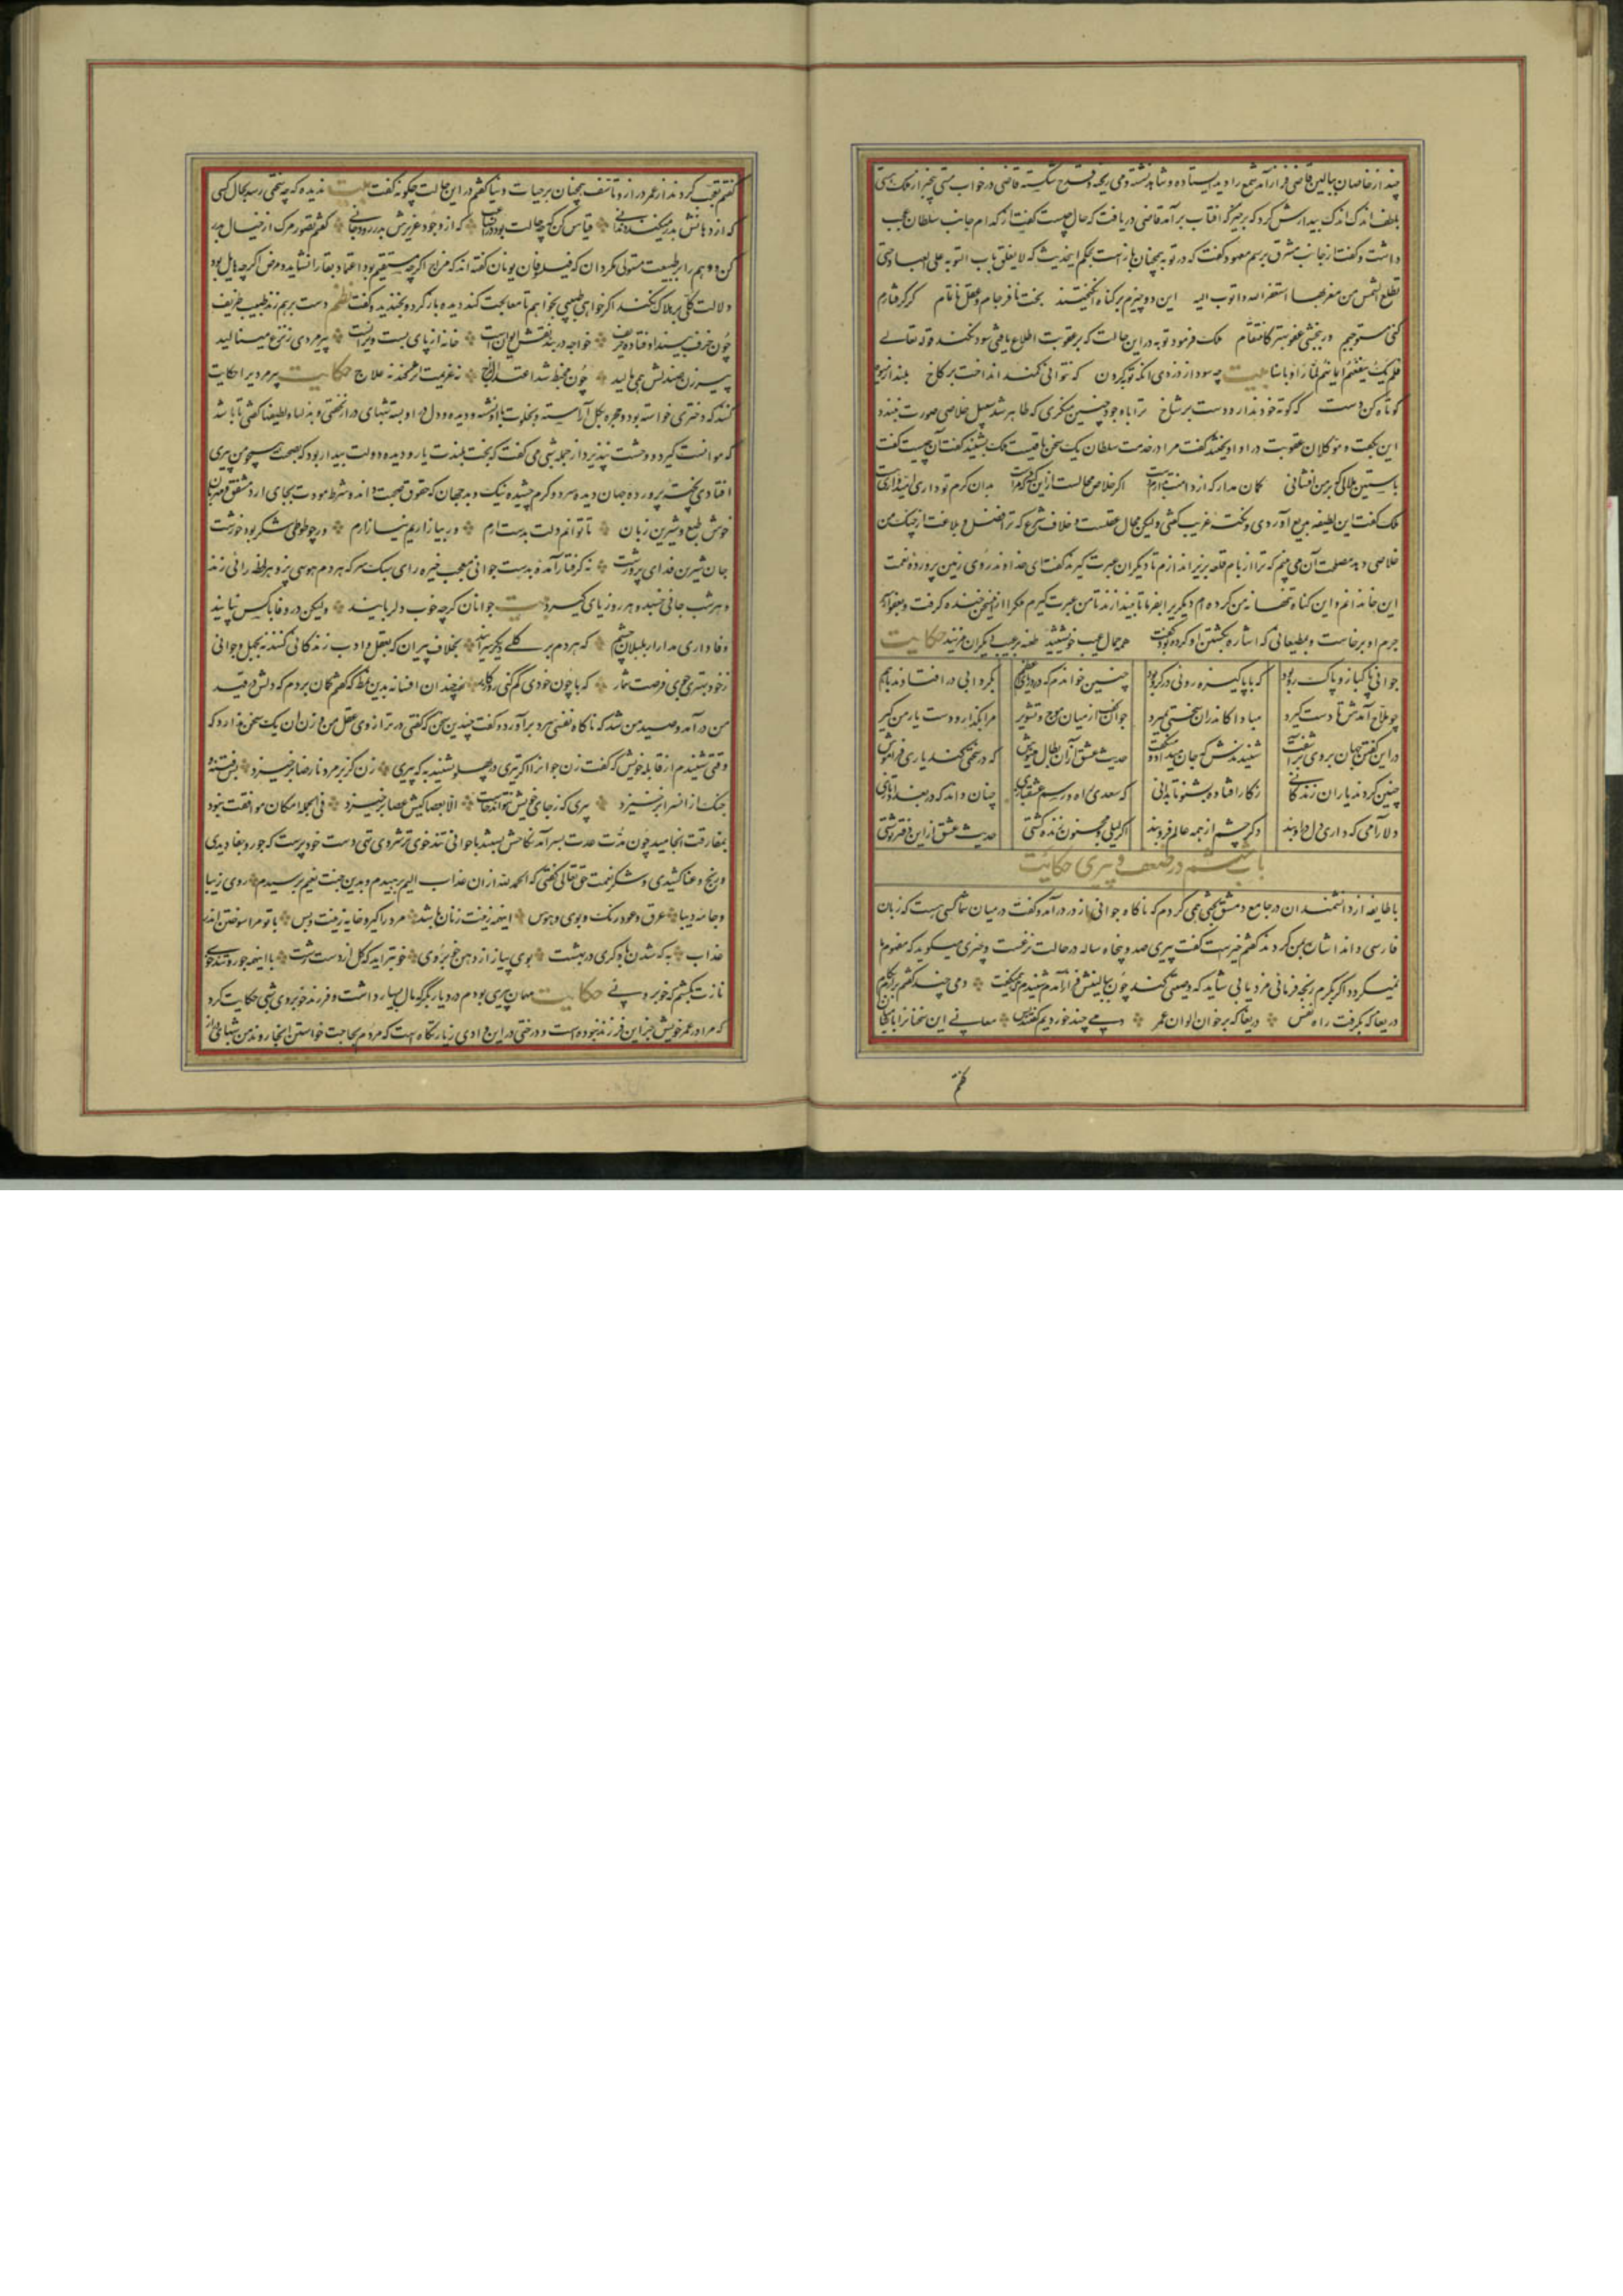 چند از خاصان ببالین قاضی فراز آمد شمع را دید ایستاده و شاهد نشسته و می ریخته و قدح شکسته قاضی در خواب مستی بیخبر از ملک هستی
بلطف اندک اندک بیدارش کرد که برخیز که آفتاب برآمد قاضی دریافت که حال چیست گفت از کدام جانب سلطان عجب
داشت و گفت از جانب مشرق برسم معهود گفت که در توبه همچنان باز است بحکم این حدیث که لا یغلق باب التوبه علی العباد حتی
تطلع الشمس من مغربها استغفر الله و اتوب الیه این دو چیزم بر گناه انگیختند بخت نافرجام و عقل ناتمام گر گرفتارم
کنی مستوجبم ور ببخشی عفو بهتر کانتقام ملک فرمود توبه در این حالت که بر عقوبت اطلاع یافتی سود نکند قوله تعالی
فلم یک ینفعهم ایمانهم لما راوا باسنا بیت چه سود از دزدی آنگه توبه کردن که نتوانی کمند انداخت بر کاخ بلند از میوه
کوتاه کن دست که کوته خود ندارد دست بر شاخ ترا با وجود چنین منکری که ظاهر شد سبیل خلاصی صورت نبندد
این بگفت و موکلان عقوبت در او آویختند گفت مرا در خدمت سلطان یک سخن باقیست ملک بشنید گفت آن چیست گفت
باستین ملالی که بر من افشانی گمان مدار که از دامنت بدارم دست اگر خلاص محالست از این گنه که مراست بدان کرم که تو داری امیدواری هست
ملک گفت این لطیفه بدیع آوردی و نکته غریب گفتی ولیکن محال عقلست و خلاف شرع که ترا فضل و بلاغت از چنگ من
خلاصی دهد مصلحت آن می بینم که ترا از بام قلعه بزیر اندازم تا دیگران عبرت گیرند گفت ای خداوند روی زمین پرورده نعمت
این خاندانم و این گناه تنها نه من کرده ام دیگری را بفرما تا بیندازند تا من عبرت گیرم ملک را از این سخن خنده گرفت و بعفو از سر
جرم او برخاست و بمطیعانی که اشاره بکشتن او کرده بودند گفت هر که حمال عیب خویشتنید طعنه بر عیب دیگران مزنید حکایت
جوانی پاکباز و پاک رو بود که با پاکیزه رویی در گرو بود چنین خواندم که در دریای اعظم بگردابی در افتادند با هم
چو ملاح آمدش تا دست گیرد مبادا کاندران سختی بمیرد همی گفت از میان موج و تشویر مرا بگذار و دست یار من گیر
در این گفتن جهان بر وی برآشفت شنیدندش که جان میداد و میگفت حدیث عشق از آن بطال منیوش که در سختی کند یاری فراموش
چنین کردند یاران زندگانی ز کار افتاده بشنو تا بدانی که سعدی راه و رسم عشقبازی چنان داند که در بغداد تازی
دلارامی که داری دل در او بند دگر چشم از همه عالم فرو بند اگر لیلی و مجنون زنده گشتی حدیث عشق از این دفتر نوشتی
باب ششم در ضعف و پیری حکایت
با طایفه از دانشمندان در جامع دمشق بحثی همی کردم که ناگاه جوانی از در درآمد و گفت در میان شما کسی هست که زبان
فارسی داند اشارت بمن کردند گفتم خیرست گفت پیری صد و پنجاه ساله در حالت نزعست و چیزی میگوید که مفهوم ما
نمیگردد اگر بکرم رنجه فرمائی مزد یابی شاید که وصیتی کند چون ببالینش فراز آمدم شنیدم میگفت دمی چند گفتم برآرم بکام
دریغا که بگرفت راه نفس دریغا که بر خوان الوان عمر دمی چند خوردیم گفتند بس معانی این سخنان را با شامیان
گفتم
گفتم تعجب کردند از عمر دراز و تاسف همچنان بر حیات دنیا گفتم در این حالت چگونه گفت بیت ندیده که چه سختی رسد بحال کسی
که از دهانش بدر میکنند دندانی قیاس کن که چه حالت بود در آن ساعت که از وجود عزیزش بدر رود جانی گفتم تصور مرگ از خیال بدر
کن و وهم را بر طبیعت مستولی مگردان که فیلسوفان یونان گفته اند که مزاج اگرچه مستقیم بود اعتماد بقا را نشاید و مرض اگرچه هایل بود
دلالت کلی بر هلاک نکند اگر خواهی طبیبی بخواهم تا معالجت کند دیده باز کرد و بخندید و گفت نظم دست بر هم زند طبیب ظریف
چون خرف بیند اوفتاده حریف خواجه در بند نقش ایوان است خانه از پای بست ویرانست پیرمردی ز نزع مینالید
پیرزن صندلش همی مالید چون مخبط شد اعتدال مزاج نه عزیمت اثر کند نه علاج حکایت پیرمردی را حکایت
کنند که دختری خواسته بود و حجره بگل آراسته و بخلوت با او نشسته و دیده و دل در او بسته شبهای دراز نخفتی و بذلها و لطیفها گفتی تا باشد
که موانست گیرد و وحشت نپذیرد از جمله شبی می گفت که بخت بلندت یار و دیده دولت بیدار بود که بصحبت همچو من پیری
افتادی پخته پرورده جهان دیده سرد و گرم چشیده نیک و بد جهان که حقوق صحبت داند و شرط مودت بجای آرد مشفق و مهربان
خوش طبع و شیرین زبان تا توانم دلت بدست آرم ور بیازاریم نیازارم ور چو طوطی شکر بود خورشت
جان شیرین فدای پرورشت نه گرفتار آمده بدست جوانی معجب خیره رای سبک سر که هر دم هوسی پزد و هر لحظه رائی زند
و هر شب جائی خسبد و هر روز یاری گیرد بیت جوانان گرچه خوب و دلربایند ولیکن در وفا با کس نپایند
وفاداری مدار از بلبلان چشم که هر دم بر گلی دیگر سرایند بخلاف پیران که بعقل و ادب زندگانی کنند نه بجهل و جوانی
ز خود بهتری جوی و فرصت شمار که با چون خودی گم کنی روزگار چندان افسانه بدین نمط که گفتم گمان بردم که دلش در قید
من درآمد و صید من شد که ناگاه نفسی سرد برآورد و گفت چندین سخن که گفتی در ترازوی عقل من وزن آن یک سخن ندارد که
وقتی شنیدم از قابله خویش که گفت زن جوان را اگر تیری در پهلو نشیند به که پیری زن کز بر مرد نارضا برخیزد بس فتنه و
جنگ از آن سرا برخیزد پیری که ز جای خویش نتواند خاست الا بعصا کیش عصا برخیزد فی الجمله امکان موافقت نبود
بمفارقت انجامید چون مدت عدت بسر آمد نکاحش ببستند با جوانی تندخوی ترشروی تهی دست خودپرست که جور و جفا دیدی
و رنج و عنا کشیدی و شکر نعمت حق تعالی گفتی که الحمد لله از آن عذاب الیم برهیدم و بدین جنت نعیم برسیدم روی زیبا
و جامه دیبا عرق و عود و رنگ و بوی و هوس اینهمه زینت زنان باشد مرد را کیر و خایه زینت و بس با تو مرا سوختن اندر
عذاب به که شدن با دگری در بهشت بوی پیاز از دهن خوبروی خوبتر آید که گل از دست زشت با اینهمه جور و تندخویی
نازت بکشم که خوبرویی حکایت مهمان پیری بودم در دیاربکر که مال بسیار داشت و فرزند خوبروی شبی حکایت کرد
که مرا در عمر خویش جز این فرزند نبوده است و درختی در این وادی زیارتگاه است که مردم بحاجت خواستن آنجا روند من شبهای دراز